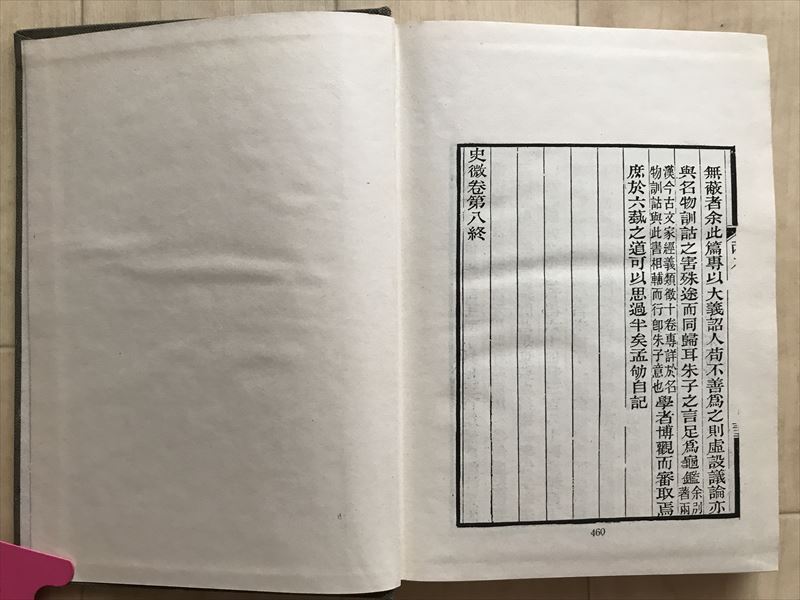 無蔽者余此篇專以大義詔人苟不善爲之則虛設議論亦
與名物訓詁之害殊途而同歸耳朱子之言足爲龜鑑余別著兩
漢今古文家經義類徵十卷專詳於名物訓詁與此書相輔而行卽朱子意也學者博觀而審取焉
庶於六蓺之道可以思過半矣孟劬自記
史微卷第八終
460